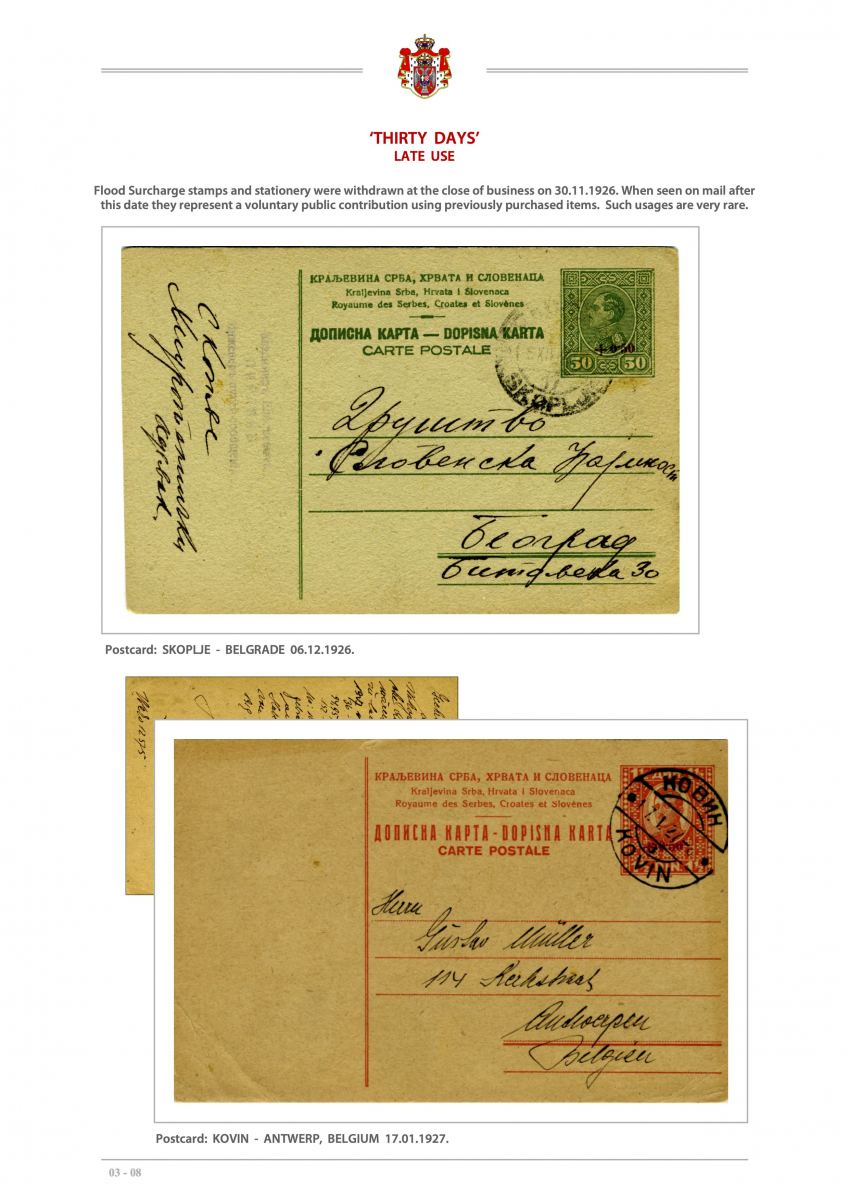 ‘THIRTY DAYS’
LATE USE
Flood Surcharge stamps and stationery were withdrawn at the close of business on 30.11.1926. When seen on mail after
this date they represent a voluntary public contribution using previously purchased items. Such usages are very rare.
КРАЉЕВИНА СРБА, ХРВАТА И СЛОВЕНАЦА
Kraljevina Srba, Hrvata i Slovenaca
Royaume des Serbes, Croates et Slovènes
ДОПИСНА КАРТА — DOPISNA KARTA
CARTE POSTALE
+ 0·50
50 50
SKOPLJE
Друштво
Словенска
Београд
Битољска 30
Postcard: SKOPLJE - BELGRADE 06.12.1926.
КРАЉЕВИНА СРБА, ХРВАТА И СЛОВЕНАЦА
Kraljevina Srba, Hrvata i Slovenaca
Royaume des Serbes, Croates et Slovènes
ДОПИСНА КАРТА - DOPISNA KARTA
CARTE POSTALE
КОВИН
KOVIN
Herrn
Gustav Müller
114 Kerkstraat
Antwerpen
Belgien
Postcard: KOVIN - ANTWERP, BELGIUM 17.01.1927.
03 - 08